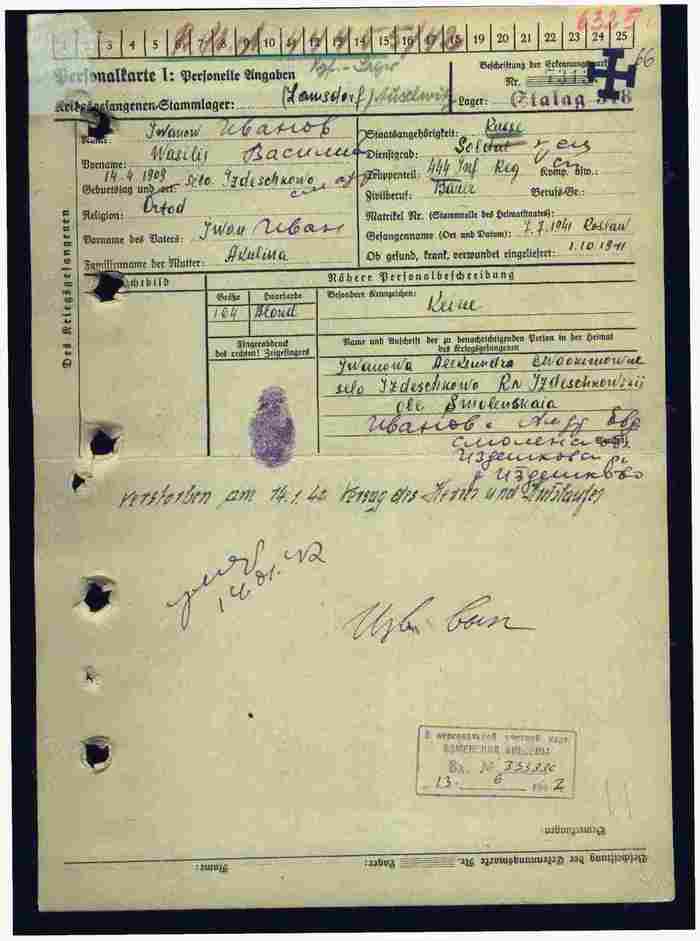 1 2 3 4 5 6 7 8 9 10 11 12 13 14 15 16 17 18 19 20 21 22 23 24 25
66
Personalkarte I: Personelle Angaben
Beschriftung der Erkennungsmarke
Nr.
Kriegsgefangenen-Stammlager: (Lamsdorf) Auschwitz
Lager: Stalag 318
Des Kriegsgefangenen
Name: Iwanow Иванов
Staatsangehörigkeit: Russe
Vorname: Wasilij Василий
Dienstgrad: Soldat
14.4.1909
Truppenteil: 444 Inf Reg Komp. usw.:
Geburtstag und -ort: selo Izdeschkowo
Zivilberuf: Bauer Berufs-Gr.:
Religion: Ortod
Matrikel Nr. (Stammrolle des Heimatstaates):
Vorname des Vaters: Iwan Иван
Gefangennahme (Ort und Datum): 7.7.1941 Roslaw
Familienname der Mutter: Akulina
Ob gesund, krank, verwundet eingeliefert: 1.10.1941
Lichtbild
Nähere Personalbeschreibung
Größe Haarfarbe Besondere Kennzeichen:
164 Blond Keine
Fingerabdruck
des rechten! Zeigefingers
Name und Anschrift der zu benachrichtigenden Person in der Heimat
des Kriegsgefangenen
Iwanowa Aleksandra
selo Izdeschkowo Rn Izdeschkowskij
obl Smolenskaia
Иванова
смоленск
Издешково
д Издешково
verstorben am 14.1.42 Versag des Herz und Kreislaufes
14.01.42
К персональной учетной карт
ВОМЕНСКИЙ
Вх. № 333336
13 6 2
Bemerkungen:
Beschriftung der Erkennungsmarke Nr.
Lager:
Name: